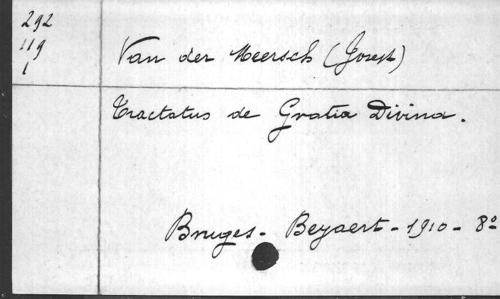 292
119
1
Van der Meersch (Joseph)
Tractatus de Gratia Divina.
Bruges - Beyaert - 1910 - 8°